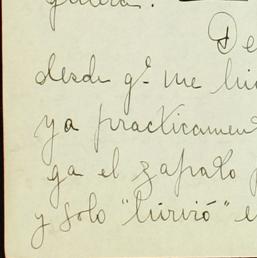 De
desde qe me hi
ya practicamen
ga el zapato
y solo "hirvió" e